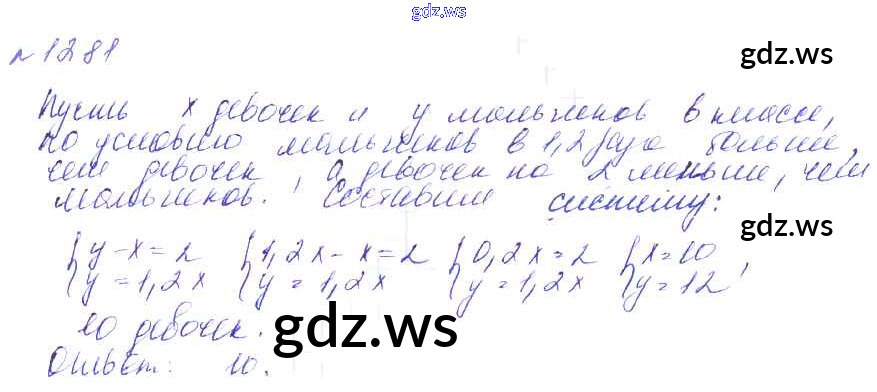 gdz.ws
№1281
gdz.ws
Пусть x девочек и y мальчиков в классе,
по условию мальчиков в 1,2 раза больше,
чем девочек, а девочек на 2 меньше, чем
мальчиков. Составим систему:
gdz.ws
{y-x=2 {1,2x-x=2 {0,2x=2 {x=10
{y=1,2x {y=1,2x {y=1,2x {y=12
10 девочек.
gdz.ws
Ответ: 10.
gdz.ws